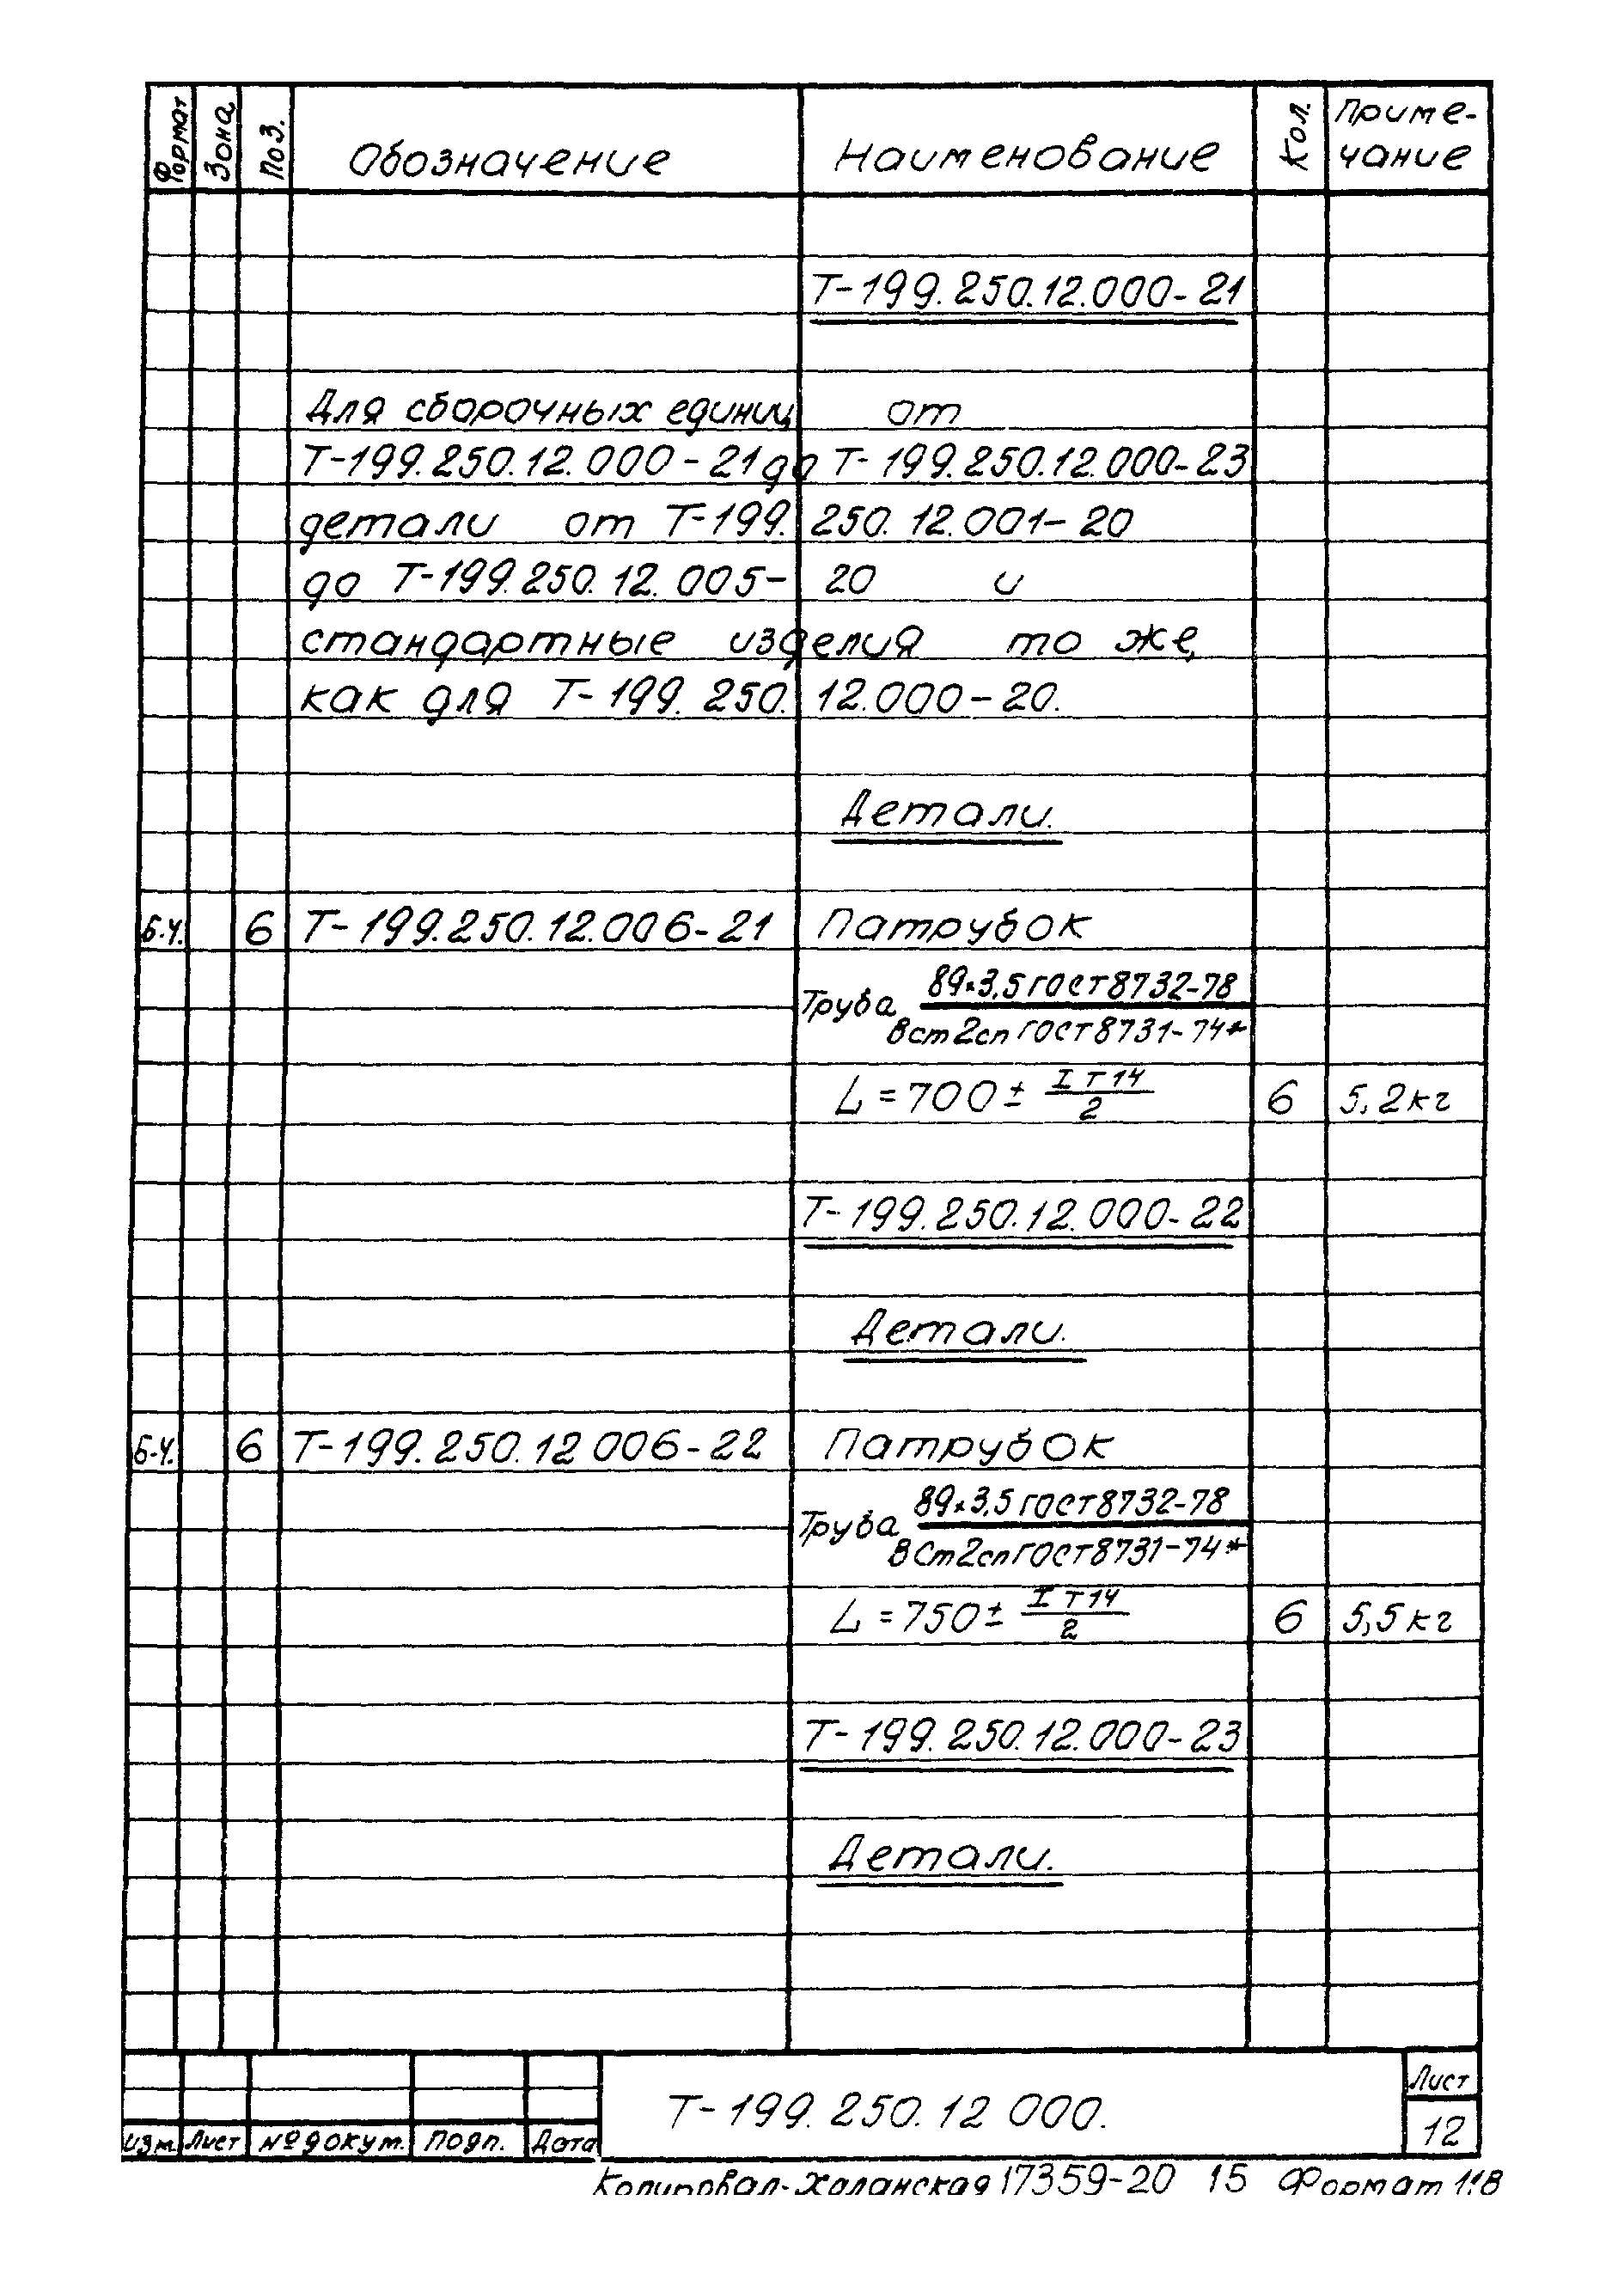 Формат Зона Поз. Обозначение Наименование Кол. Приме-
чание
Т-199.250.12.000-21
Для сборочных единиц от
Т-199.250.12.000-21 до Т-199.250.12.000-23
детали от Т-199.250.12.001-20
до Т-199.250.12.005-20 и
стандартные изделия то же,
как для Т-199.250.12.000-20.
Детали.
Б.Ч. 6 Т-199.250.12.006-21 Патрубок
Труба 89×3,5 ГОСТ 8732-78
Вст2сп ГОСТ 8731-74*
L=700± IT14/2 6 5,2кг
Т-199.250.12.000-22
Детали.
Б.Ч. 6 Т-199.250.12 006-22 Патрубок
Труба 89×3,5 ГОСТ 8732-78
ВСт2сп ГОСТ 8731-74*
L=750± IT14/2 6 5,5кг
Т-199.250.12.000-23
Детали.
Т-199.250.12 000.
Лист
12
Изм. Лист № докум. Подп. Дата
Копировал-Халанская 17359-20 15 Формат 11В